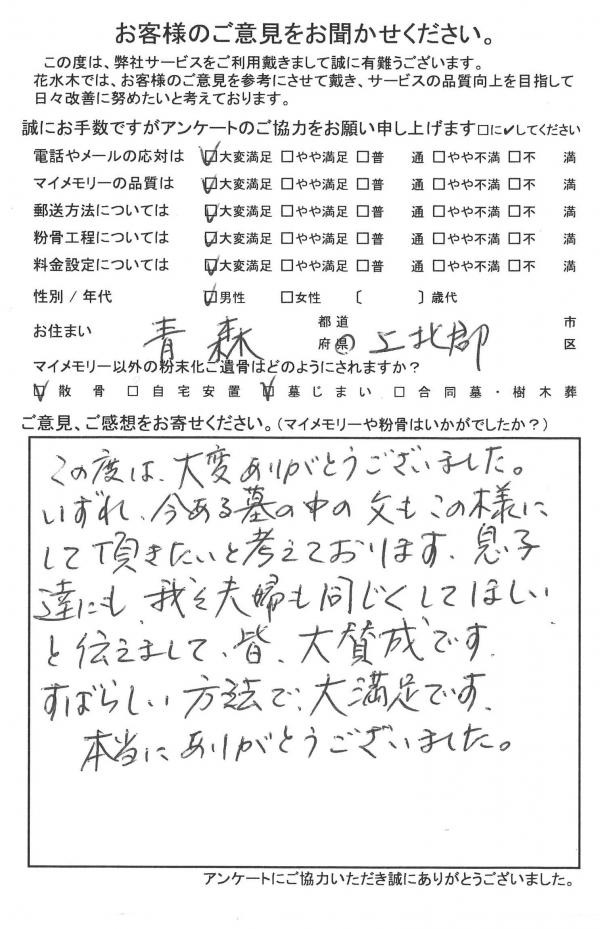 お客様のご意見をお聞かせください。
この度は、弊社サービスをご利用戴きまして誠に有難うございます。
花水木では、お客様のご意見を参考にさせて戴き、サービスの品質向上を目指して
日々改善に努めたいと考えております。
誠にお手数ですがアンケートのご協力をお願い申し上げます□に✔してください
電話やメールの応対は ☑大変満足 □やや満足 □普 通 □やや不満 □不 満
マイメモリーの品質は ☑大変満足 □やや満足 □普 通 □やや不満 □不 満
郵送方法については ☑大変満足 □やや満足 □普 通 □やや不満 □不 満
粉骨工程については ☑大変満足 □やや満足 □普 通 □やや不満 □不 満
料金設定については ☑大変満足 □やや満足 □普 通 □やや不満 □不 満
性別 / 年代 ☑男性 □女性 〔 〕歳代
お住まい 青森 都道府県 上北郡 市区
マイメモリー以外の粉末化ご遺骨はどのようにされますか？
☑散骨 □自宅安置 ☑墓じまい □合同墓・樹木葬
ご意見、ご感想をお寄せください。（マイメモリーや粉骨はいかがでしたか？）
この度は、大変ありがとうございました。
いずれ、今ある墓の中の父もこの様に
して頂きたいと考えております。息子
達にも、我々夫婦も同じくしてほしい
と伝えまして、皆、大賛成です。
すばらしい方法で、大満足です。
本当にありがとうございました。
アンケートにご協力いただき誠にありがとうございました。